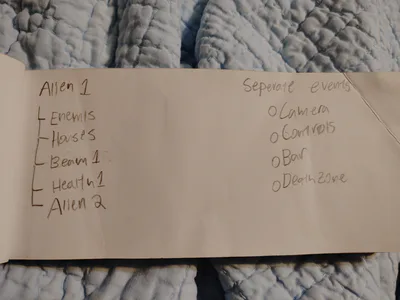 Alien 1
Enemis
Houses
Beam 1
Health 1
Alien 2
Seperate events
Camera
Controls
Bar
Death zone